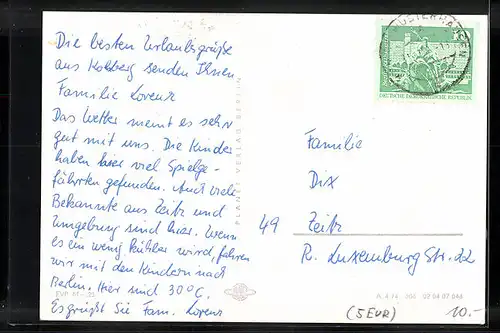 Die besten Urlaubsgrüße
aus Kolberg senden Ihnen
Familie Lorenz
Das Wetter meint es sehr
gut mit uns. Die Kinder
haben hier viel Spielge-
fährten gefunden. Auch viele
Bekannte aus Zeitz und
Umgebung sind hier. Wenn
es ein wenig kühler wird, fahren
wir mit den Kindern nach
Berlin. Hier sind 30°C.
Es grüßt Sie Fam. Lorenz
PLANET-VERLAG BERLIN
DEUTSCHE DEMOKRATISCHE REPUBLIK
Familie
Dix
49 Zeitz
R. Luxemburg Str. 22
(5 EUR)
10.-